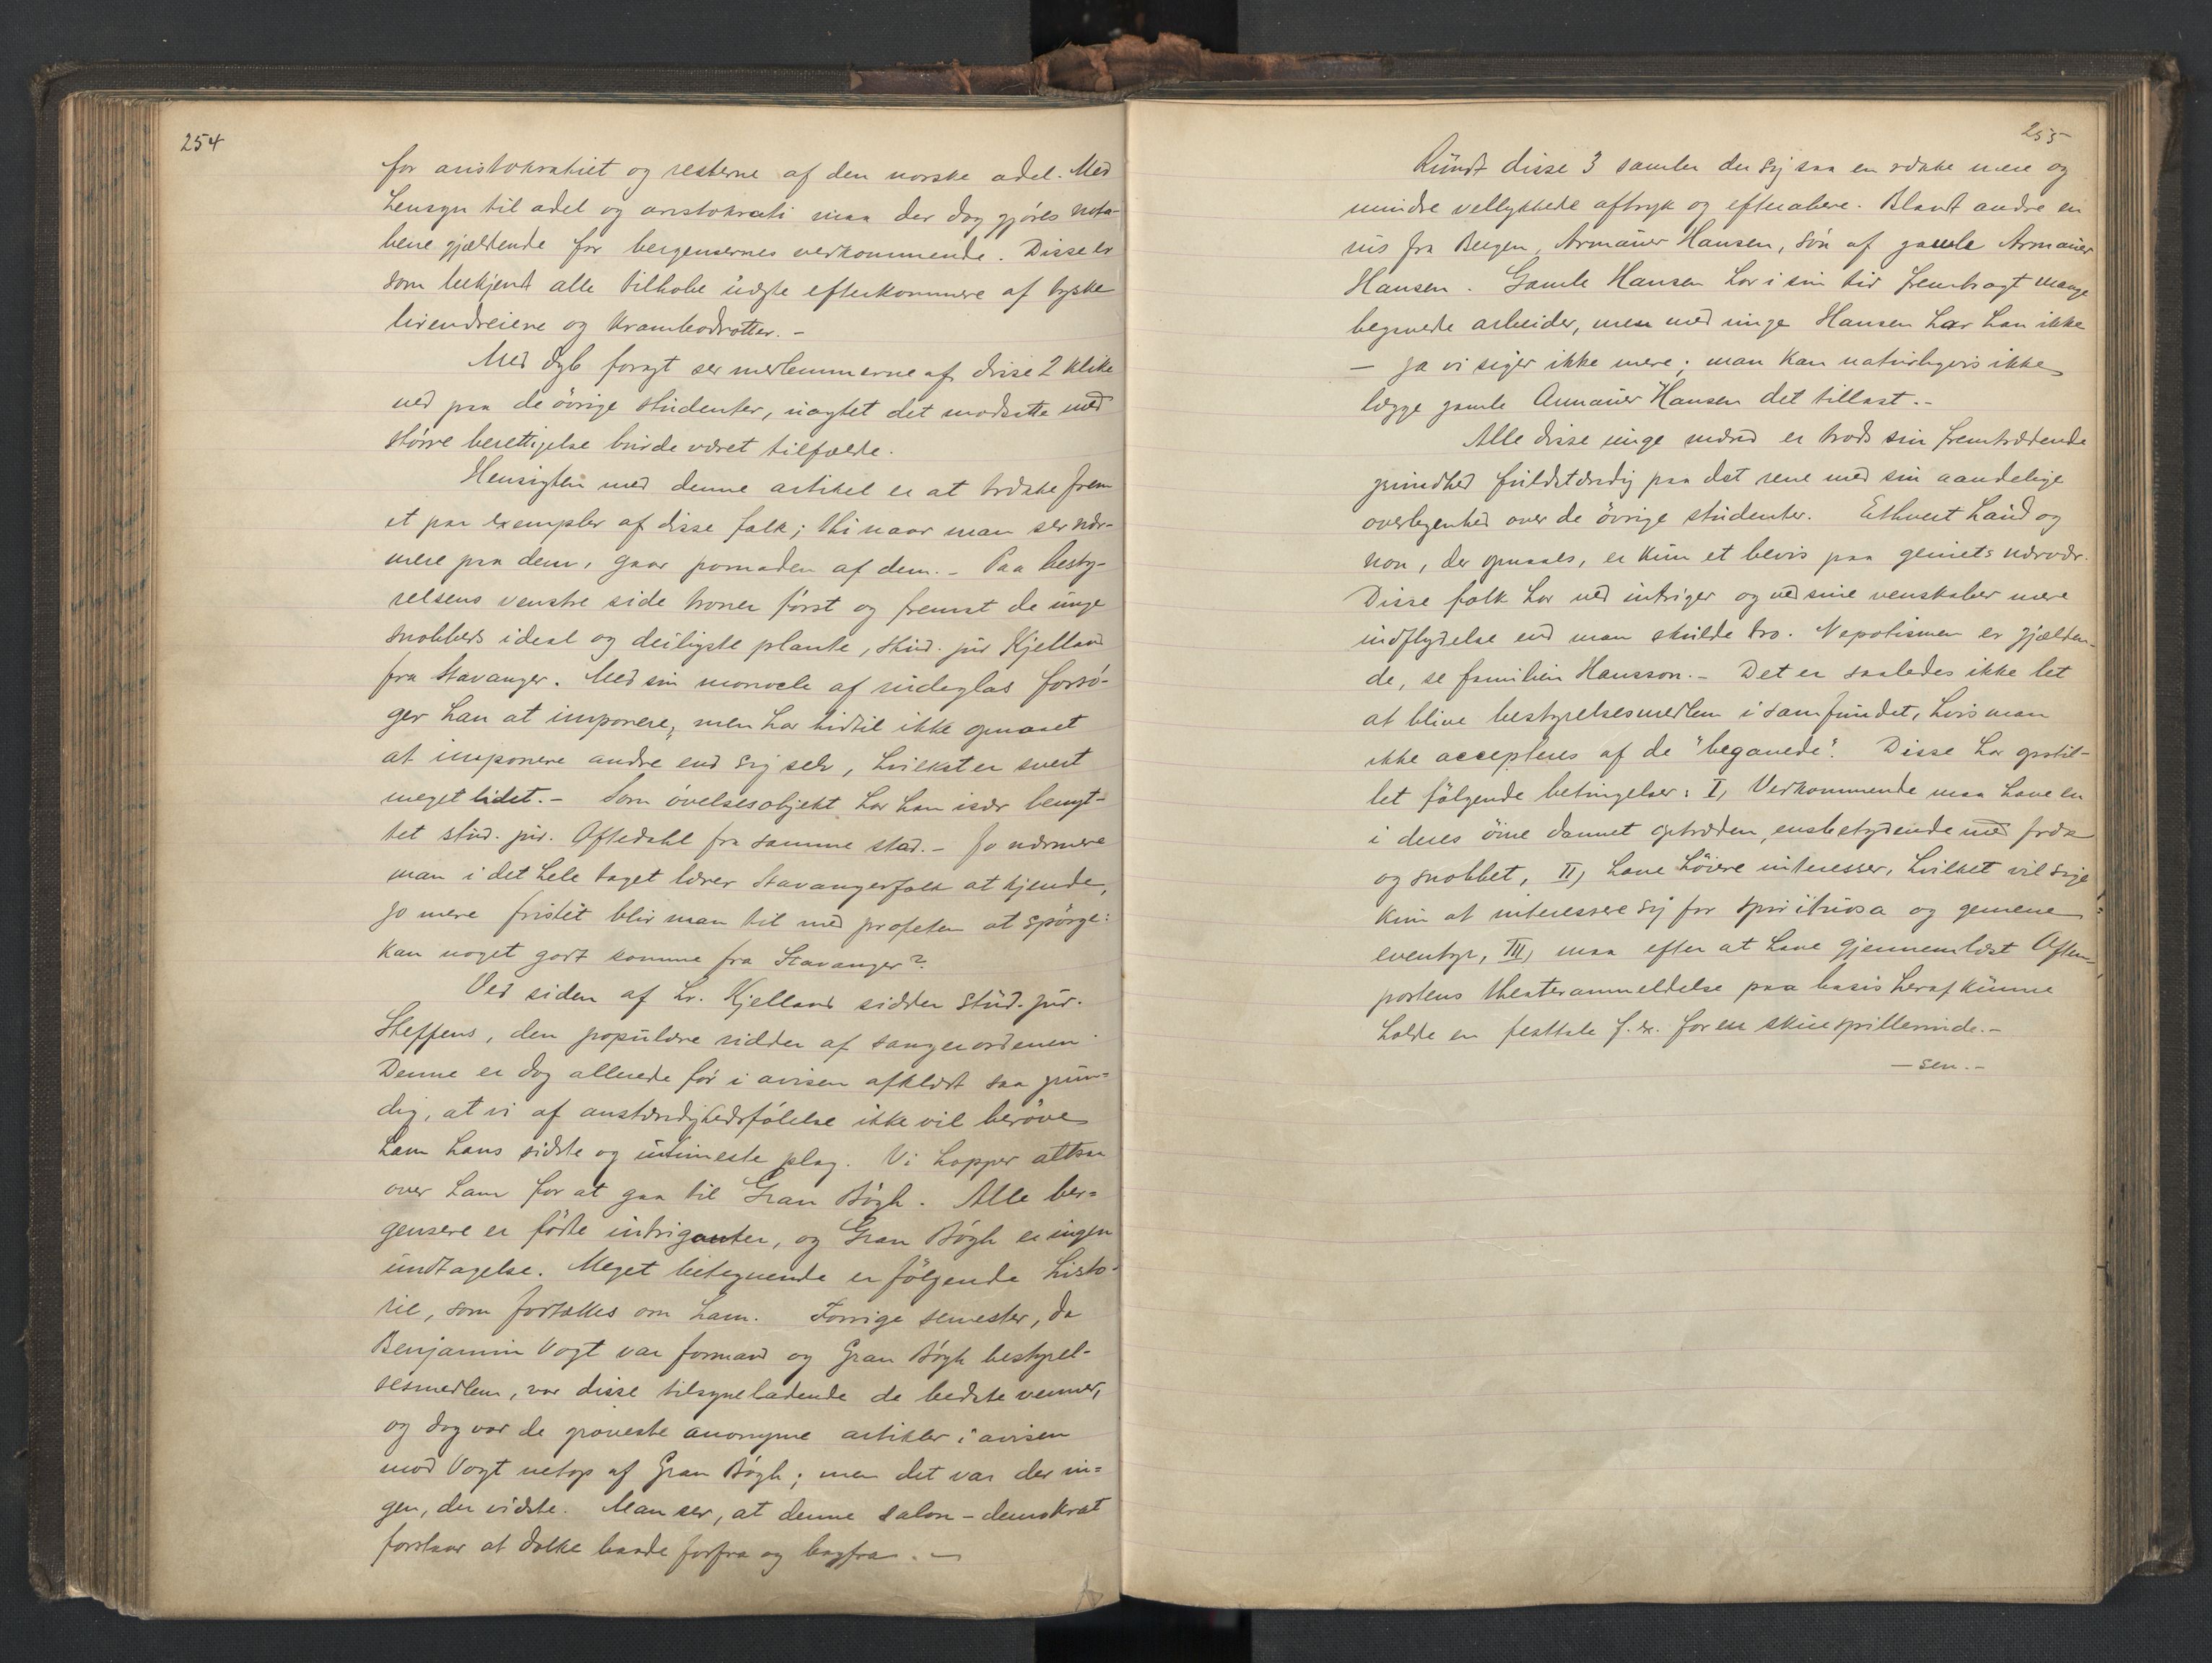 254
for aristokratiet og resterne af den norske adel. Med
hensyn til adel og aristokrati maa der dog gjöres nota-
bene gjældende for bergensernes vedkommende. Disse er
som bekjendt alle tilhobe uægte efterkommere af tyske
lirendreiere og krambodrotter. -
Med dyb foragt ser medlemmerne af disse 2 kliker
ned paa de övrige studenter, uagtet det modsatte med
större berettigelse burde været tilfælde.
Hensigten med denne artikel er at trække frem
et par exempler af disse folk; thi naar man ser nær-
mere paa dem, gaar pomaden af dem. - Paa besty-
relsens venstre side troner först og fremst de unge
snobbers ideal og deiligste plante, stud. jur Kjelland
fra Stavanger. Med sin monocle af rudeglas forsö-
ger han at imponere, men har hidtil ikke opnaaet
at imponere andre end sig selv, hvilket er svert
meget lidet. - Som övelsesobjekt har han især benyt-
tet stud. jur. Aftedahl fra samme stad. - Jo nærmere
man i det hele taget lærer Stavangerfolk at kjende,
jo mere fristet blir man til med profeten at spörge:
kan noget godt komme fra Stavanger?
Ved siden af hr. Kjelland sidder stud. jur.
Steffens, den populære ridder af sangerordenen.
Denne er dog allerede för i avisen afklædt saa grun-
dig, at vi af anstændighedsfölelse ikke vil beröve
ham hans sidste og intimeste plag. Vi hopper altsaa
over ham for at gaa til Gran Bögh. Alle ber-
gensere er födte intriganter, og Gran Bögh er ingen
undtagelse. Meget betegnende er fölgende histo-
rie, som fortælles om ham. Forrige semester, da
Benjamin Vogt var formand og Gran Bögh bestyrel-
sesmedlem, var disse tilsyneladende de bedste venner,
og dog var de groveste anonyme artikler i avisen
mod Vogt netop af Gran Bögh; men det var der in-
gen, der vidste. Man ser, at denne salon-demokrat
forstaar at dolke baade forfra og bagfra. -
255
Rundt disse 3 samler der sig saa en række mere og
mindre vellykkede aftryk og efterabere. Blandt andre en
rus fra Bergen, Armauer Hansen, sön af gamle Armauer
Hansen. Gamle Hansen har i sin tid frembragt mange
begavede arbeider, men med unge Hansen har han ikke
- ja vi siger ikke mere; man kan naturligvis ikke
lægge gamle Armauer Hansen det tillast. -
Alle disse unge mænd er trods sin fremtrædende
grundhed fuldstændig paa det rene med sin aandelige
overlegenhed over de övrige studenter. Ethvert haud og
non, der opnaaes, er kun et bevis paa geniets nærvær.
Disse folk har ved intriger og ved sine venskaber mere
indflydelse end man skulde tro. Nepotismen er gjælden-
de, se familien Hansson. - Det er saaledes ikke let
at blive bestyrelsesmedlem i samfundet, hvis man
ikke accepteres af de "begavede". Disse har opstil-
let fölgende betingelser: I, Vedkommende maa have en
i deres öine dannet optræden, ensbetydende med fræk
og snobbet, II, have höiere interesser, hvilket vil sige
kun at interessere sig for spirituosa og gemene
eventyr, III, maa efter at have gjennemlæst Aften-
postens theateranmeldelse paa basis heraf kunne
holde en festtale f. ex. for en skuespillerinde. -
- sen. -